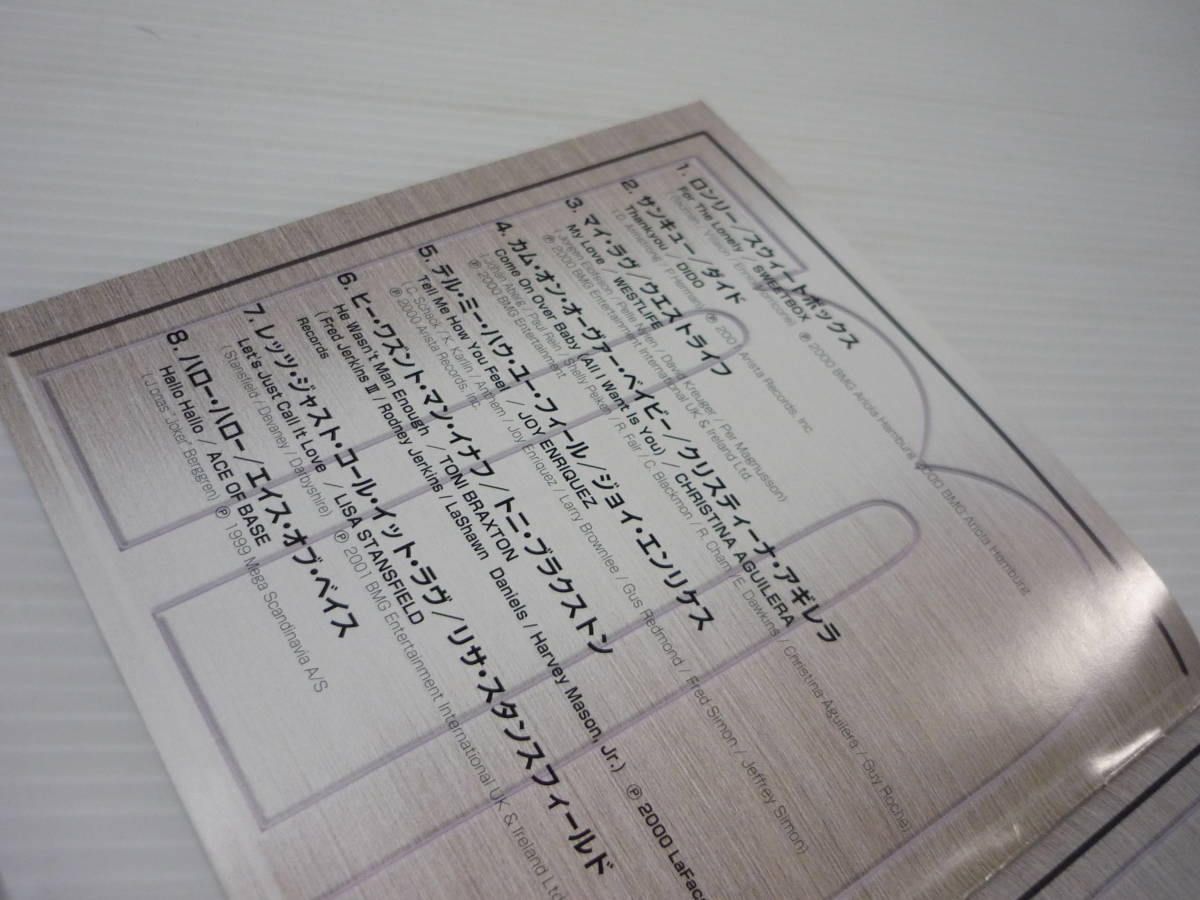 1. ロンリー/スウィートボックス
For The Lonely / SWEETBOX
℗ 2000 BMG Ariola Hamburg © 2000 BMG Ariola Hamburg
2. サンキュー/ダイド
Thankyou / DIDO
(D. Armstrong / P.Herman) ℗ 200 Arista Records, Inc.
3. マイ・ラヴ/ウエストライフ
My Love / WESTLIFE
(Jorgen Elofsson / Pelle Nylen / David Kreuger / Per Magnusson)
℗ 2000 BMG Entertainment International UK & Ireland Ltd.
4. カム・オン・オーヴァー・ベイビー/クリスティーナ・アギレラ
Come On Over Baby (All I Want Is You) / CHRISTINA AGUILERA
(Johan Aberg / Paul Rein / Shelly Peiken / R. Fair / C. Blackmon / R. Cham / E. Dawkins / Christina Aguilera / Guy Roche)
℗ 2000 BMG Entertainment
5. テル・ミー・ハウ・ユー・フィール/ジョイ・エンリケス
Tell Me How You Feel / JOY ENRIQUEZ
(C. Schack / K. Karlin / Anthem / Joy Enriquez / Larry Brownlee / Gus Redmond / Fred Simon / Jeffrey Simon)
℗ 2000 Arista Records, Inc
6. ヒー・ワズント・マン・イナフ/トニ・ブラクストン
He Wasn't Man Enough / TONI BRAXTON
(Fred Jerkins Ⅲ / Rodney Jerkins / LaShawn Daniels / Harvey Mason, Jr.) ℗ 2000 LaFace
Records
7. レッツ・ジャスト・コール・イット・ラヴ/リサ・スタンスフィールド
Let's Just Call It Love / LISA STANSFIELD
(Stansfield / Devaney / Darbyshire) ℗ 2001 BMG Entertainment International UK & Ireland Ltd
8. ハロー・ハロー/エイス・オブ・ベイス
Hallo Hallo / ACE OF BASE
(Jonas "Joker" Berggren) ℗ 1999 Mega Scandinavia A/S